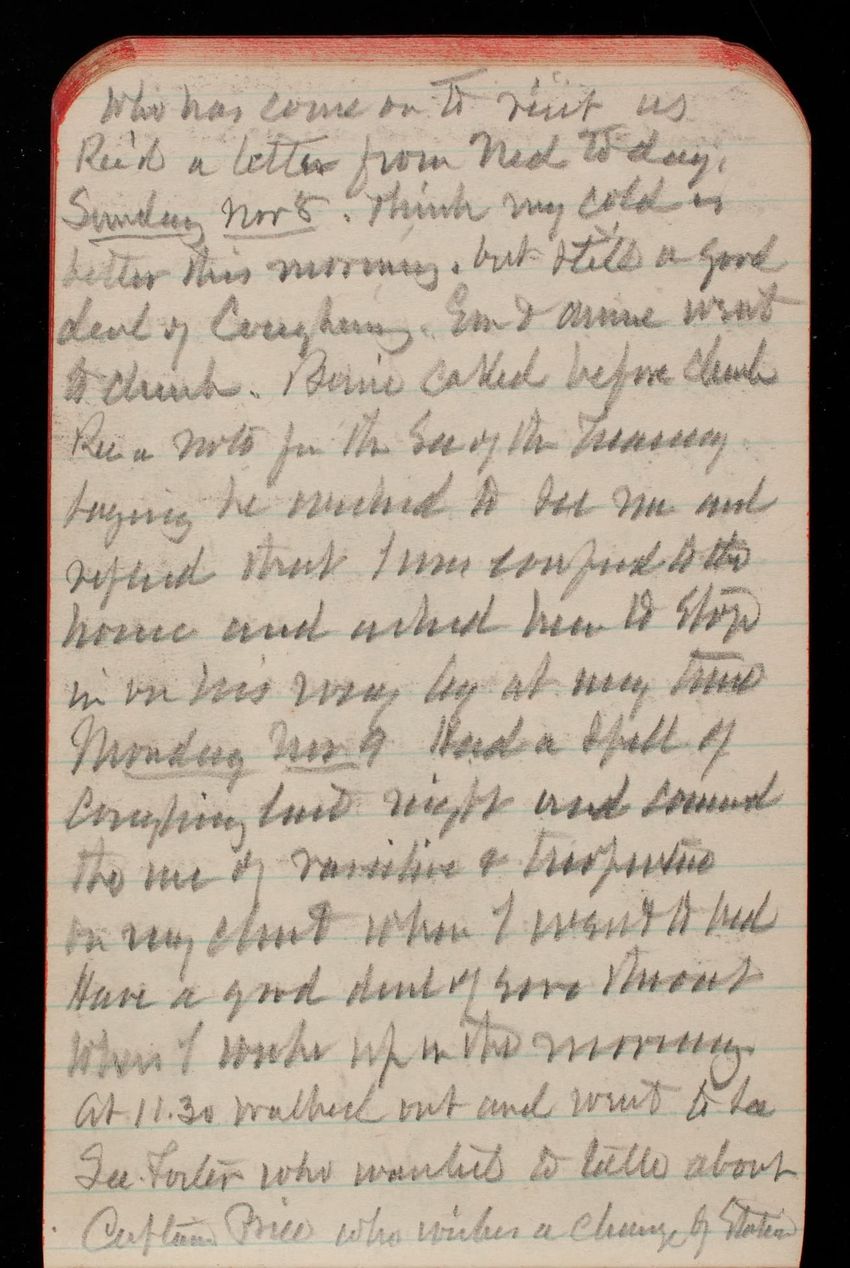 who has come on to visit us
Rec'd a letter from Ned To day.
Sunday Nov 8. Think my cold is
better this morning. but still a good
deal of Coughing. Em & Annie went
to church. called before church
Rec a note from the Sec of the Treasury
saying he wished to see me and
replied that I was confined to the
house and asked him to stop
in on his way by at any time
Monday Nov 9 Had a spell of
Coughing last night and
the use of vaseline & turpentine
on my chest when I went to bed
Have a good deal of sore throat
when I woke up in the morning
At 11.30 walked out and went to see
Sec. Foster who wanted to talk about
Captain Price who wishes a change of Station